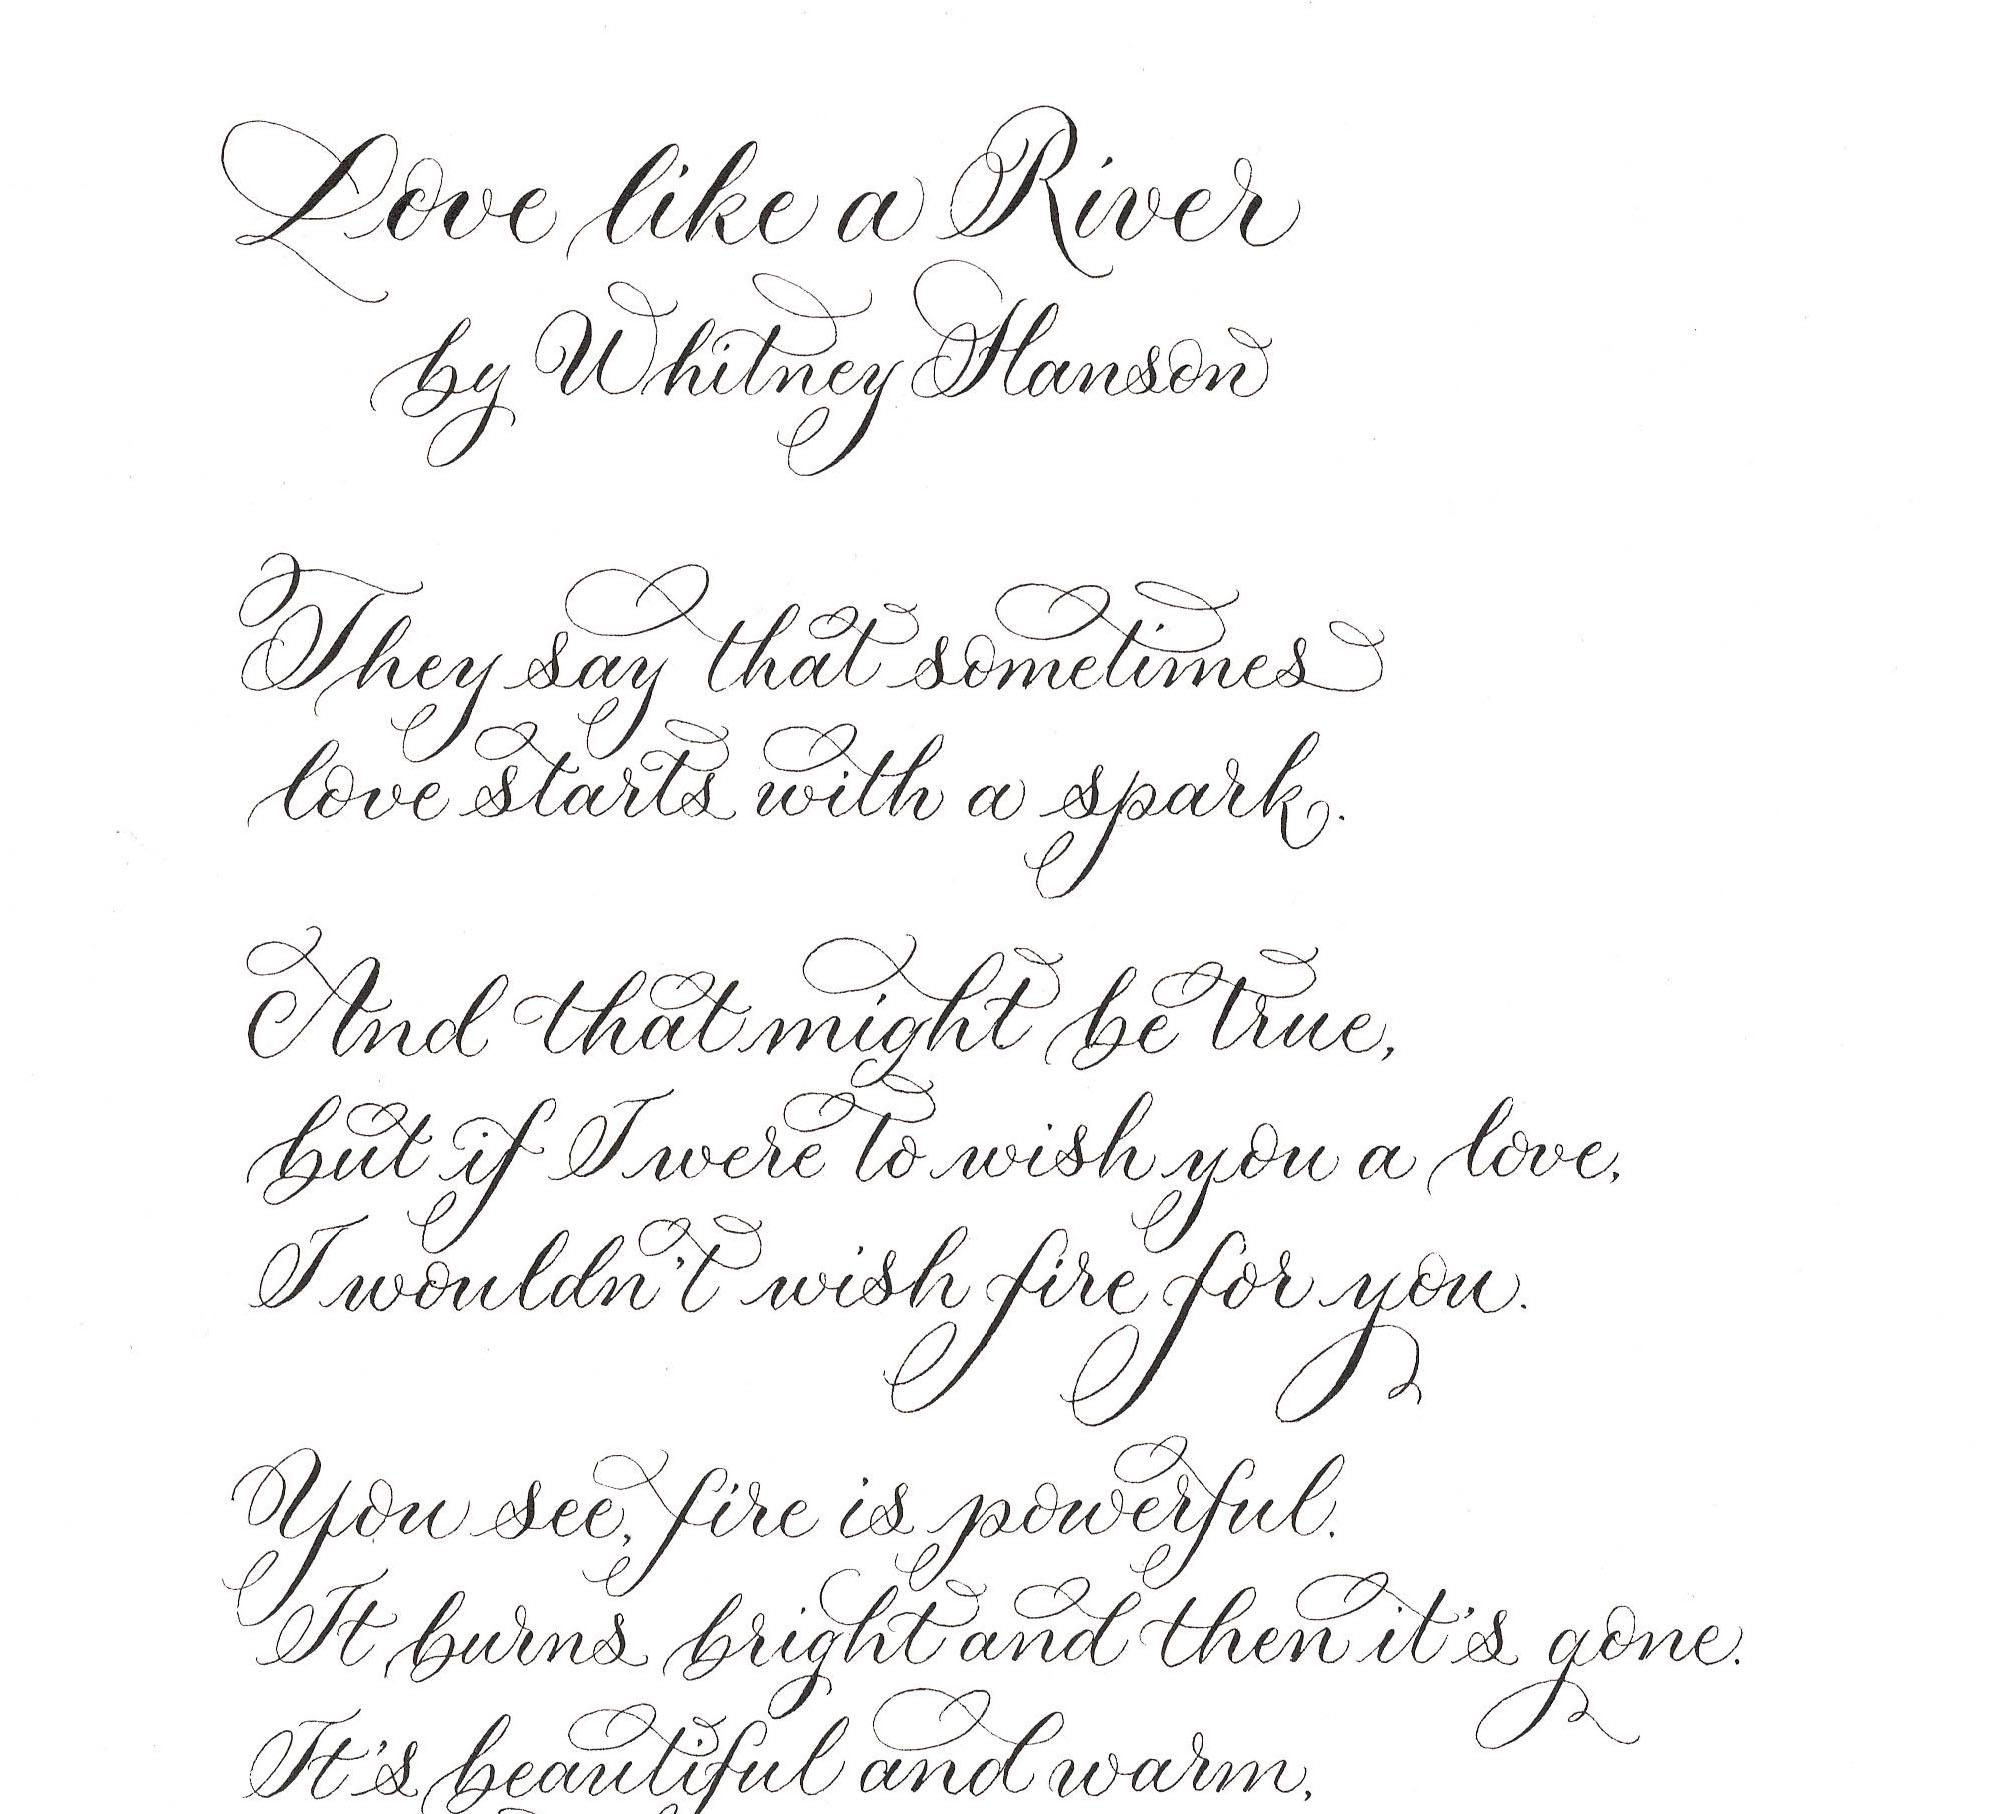 Love like a River
by Whitney Hanson
They say that sometimes
love starts with a spark.
And that might be true,
but if I were to wish you a love,
I wouldn't wish fire for you.
You see, fire is powerful.
It burns bright and then it's gone.
It's beautiful and warm,